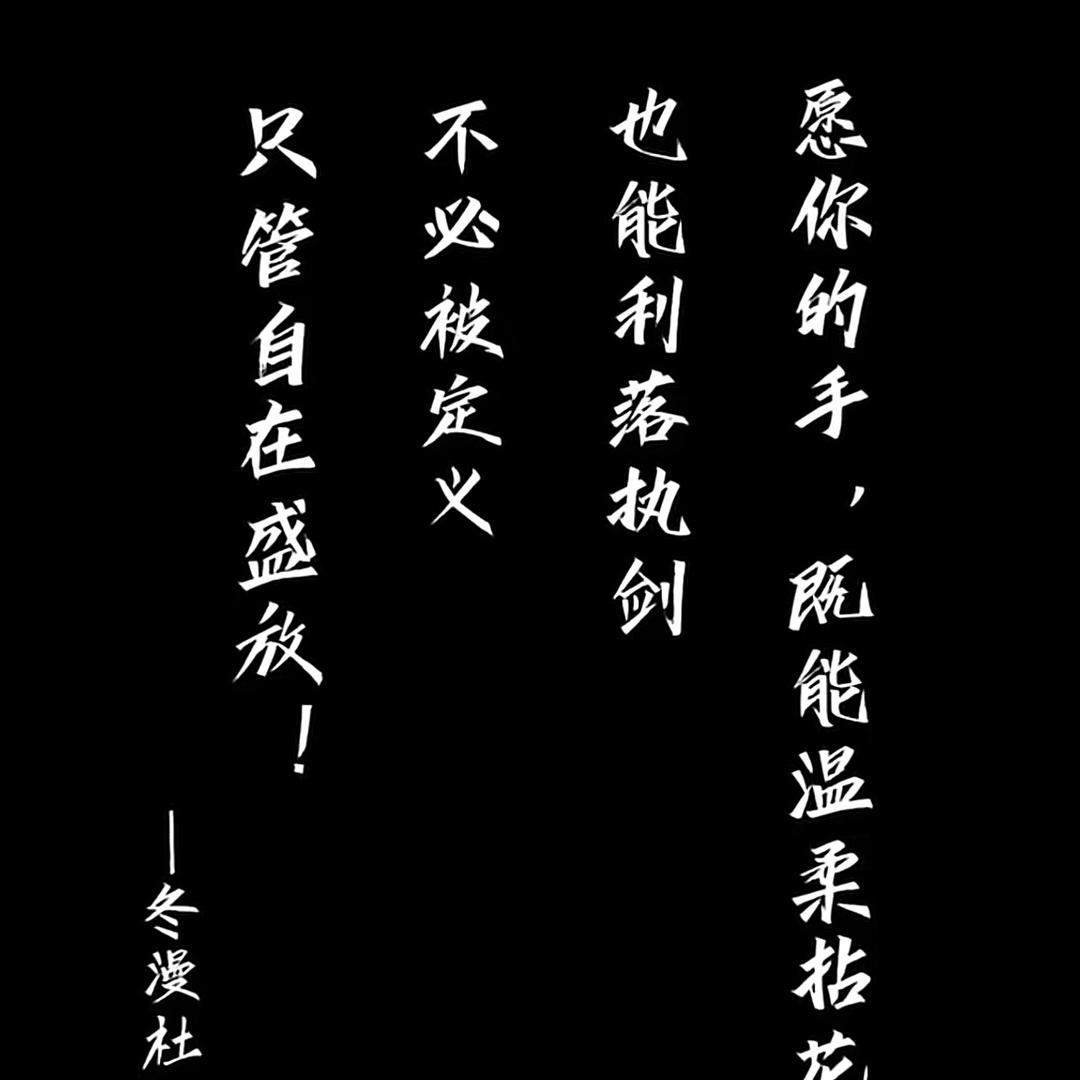 愿你的手，既能温柔拈花
也能利落执剑
不必被定义
只管自在盛放！
—冬漫社